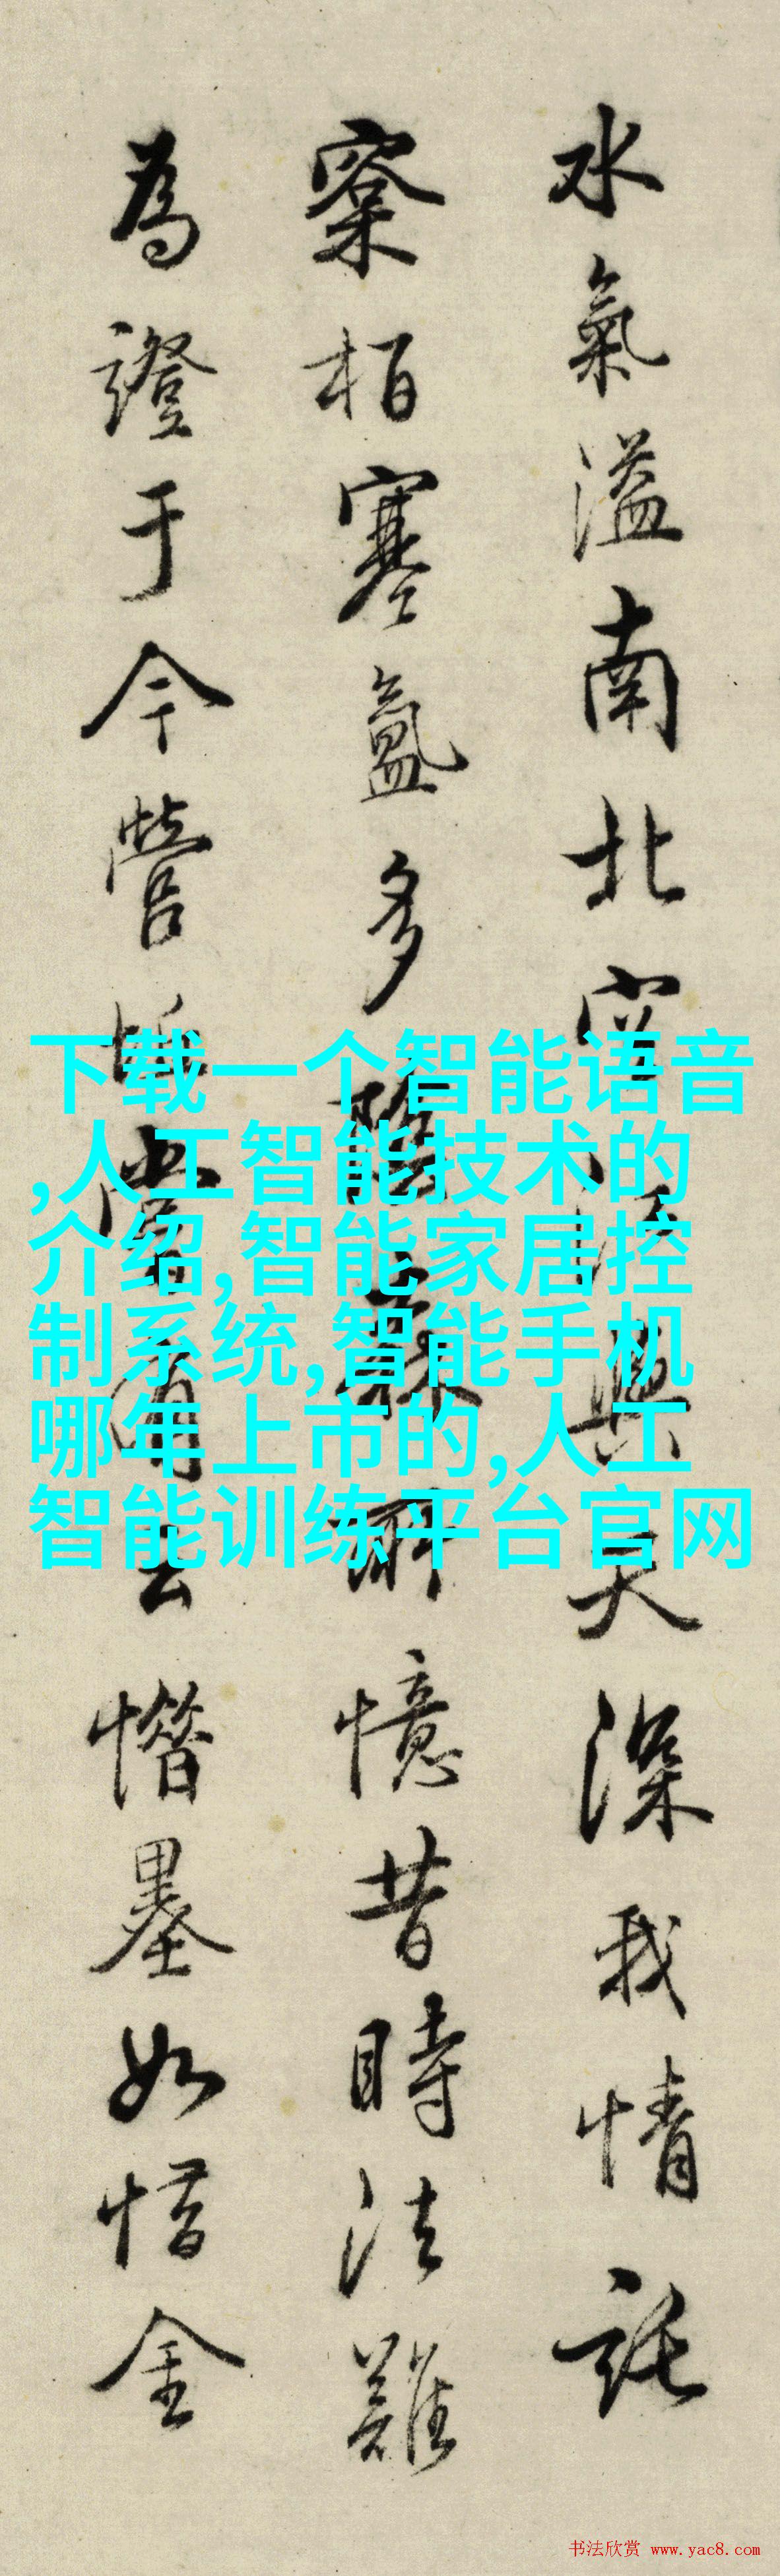 水氣溢南北空濛與天深我情託
寀栢寒氳多陰森辭憶昔時法難
為證于今營坵當
甫去惜墨如惜金
下载一个智能语音
,人工智能技术的
介绍,智能家居控
制系统,智能手机
哪年上市的,人工
智能训练平台官网
书法欣赏 www.yac8.com